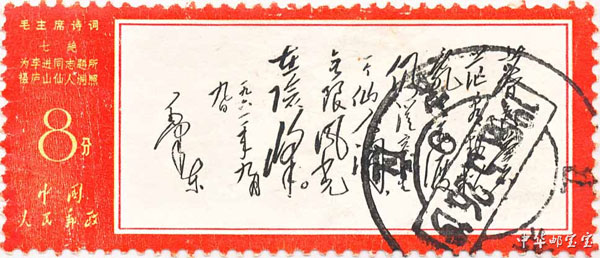 毛主席诗词
七绝
为李进同志题所
摄庐山仙人洞照
8分
中国
人民邮政
暮色苍
茫看劲松
乱云飞渡
仍从容天生
一个仙人洞
无限风光
在险峰。
一九六一年九月
九日
毛泽东
中华邮宝宝